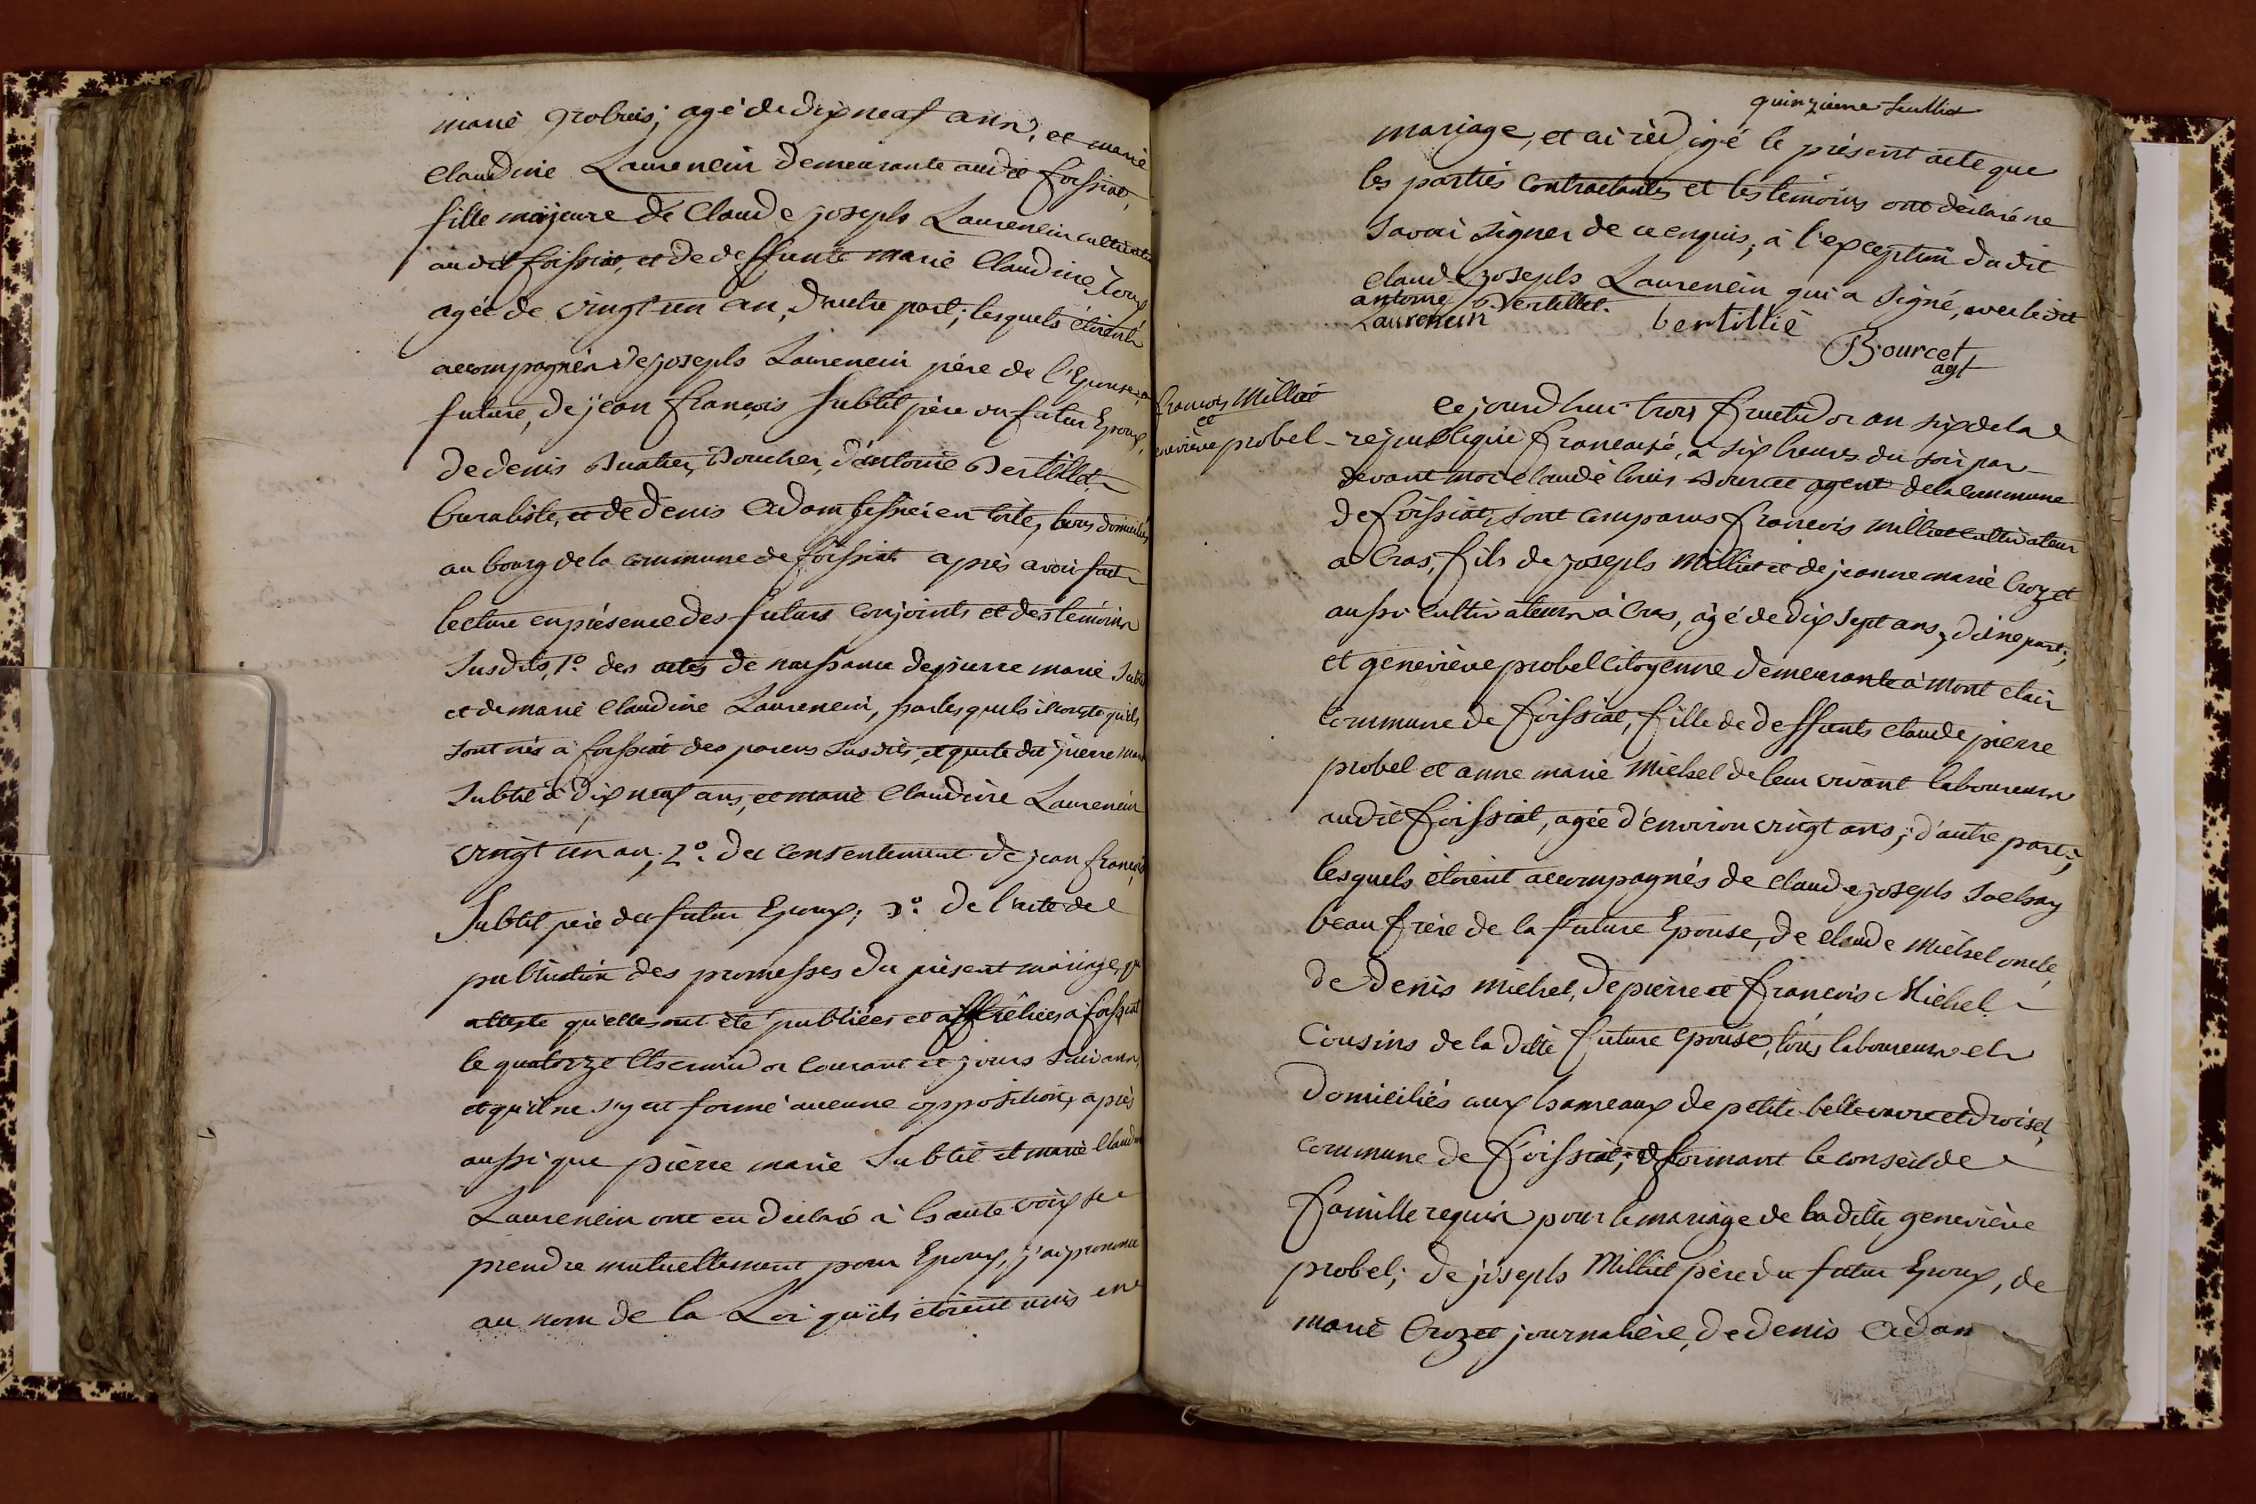 marie grobuis; agé de dix neuf ans, et marie
Claudine Laurencin demeurante audit foissiat,
fille majeure de Claude joseph Laurencin cultivateur
audit foissiat, et de deffunte marie Claudine
agée de vingt un an, d'autre part; lesquels étoient
accompagnés de joseph Laurencin père de l'Epouse
future, de jean françois Subtil père du futur Epoux,
de denis Buatier Boucher, d'antoine Bertillet
buraliste, et de denis Adam tissier en toile, tous domiciliés
au bourg de la commune de foissiat après avoir fait
lecture en présence des futurs conjoints et des témoins
susdits, 1º. des actes de naissance de pierre marie Subtil
et de marie Claudine Laurencin, par lesquels il conste qu'ils
sont nés à foissiat des parens susdits, et que le dit pierre marie
Subtil a dix neuf ans, et marie Claudine Laurencin
vingt un an; 2º. du consentement de jean françois
Subtil père du futur Epoux; 3º. de l'acte de
publication des promesses du présent mariage, qui
atteste qu'elles ont été publiées et affichées à foissiat
le quatorze thermidor courant et jours suivans,
et qu'il ne s'y est formé aucune opposition, après
aussi que pierre marie Subtil et marie Claudine
Laurencin ont eu déclaré à haute voix se
prendre mutuellement pour Epoux, j'ai prononcé
au nom de la Loi qu'ils étoient unis en
quinzieme feuillet
mariage, et ai rédigé le présent acte que
les parties contractantes et les témoins ont déclaré ne
savoir signer de ce enquis, à l'exception du dit
Claude joseph Laurencin qui a signé, avec le dit
antoine Bertillet.
Laurencin bertillié
Bourcet
agt
françois Milliet
et
geneviève probel
Cejourd'hui trois fructidor an six de la
république française, à six heures du soir par
devant moi Claude louis Bourcet agent de la commune
de foissiat, sont comparus françois milliet cultivateur
à Cras, fils de joseph Milliet et de jeanne marie Crozet
aussi cultivateurs à Cras, âgé de dix sept ans, d'une part;
et geneviève probel citoyenne demeurante à Mont clair
commune de foissiat, fille de deffunts Claude pierre
probel et anne marie Michel de leur vivant laboureurs
audit foissiat, agée d'environ vingt ans; d'autre part;
lesquels étoient accompagnés de Claude joseph
beau frère de la future Epouse, de Claude Michel oncle,
de Denis michel, de pierre et françois Michel
Cousins de la dite future Epouse, tous laboureurs et
domiciliés aux hameaux de petite bellevavre et droiset,
commune de foissiat; et formant le conseil de
famille requis pour le mariage de la ditte geneviève
probel; de joseph Milliet père du futur Epoux, de
marie Crozet journalière, de denis Adam